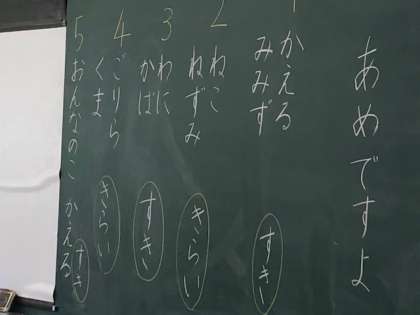 あめですよ
かえる
みみず すき
2 ねこ
ねずみ きらい
3 わに
かば すき
4 ごりら
くま きらい
5 おんなのこ かえる すき